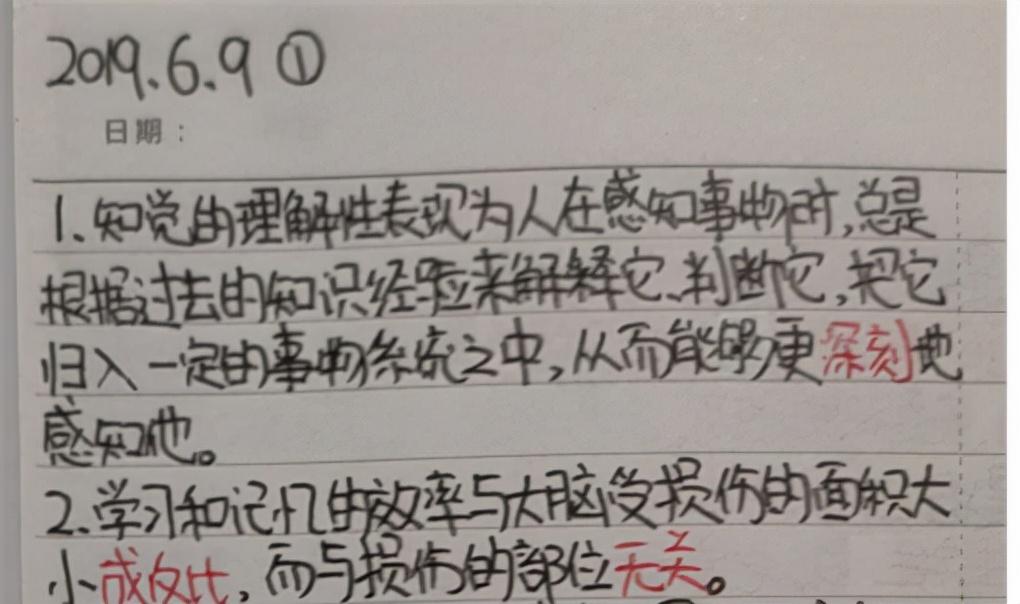 2019.6.9 ①
日期：
1.知觉的理解性表现为人在感知事物时,总是
根据过去的知识经验来解释它、判断它,把它
归入一定的事物系统之中,从而能够更深刻地
感知他。
2.学习和记忆的效率与大脑受损伤的面积大
小成反比,而与损伤的部位无关。